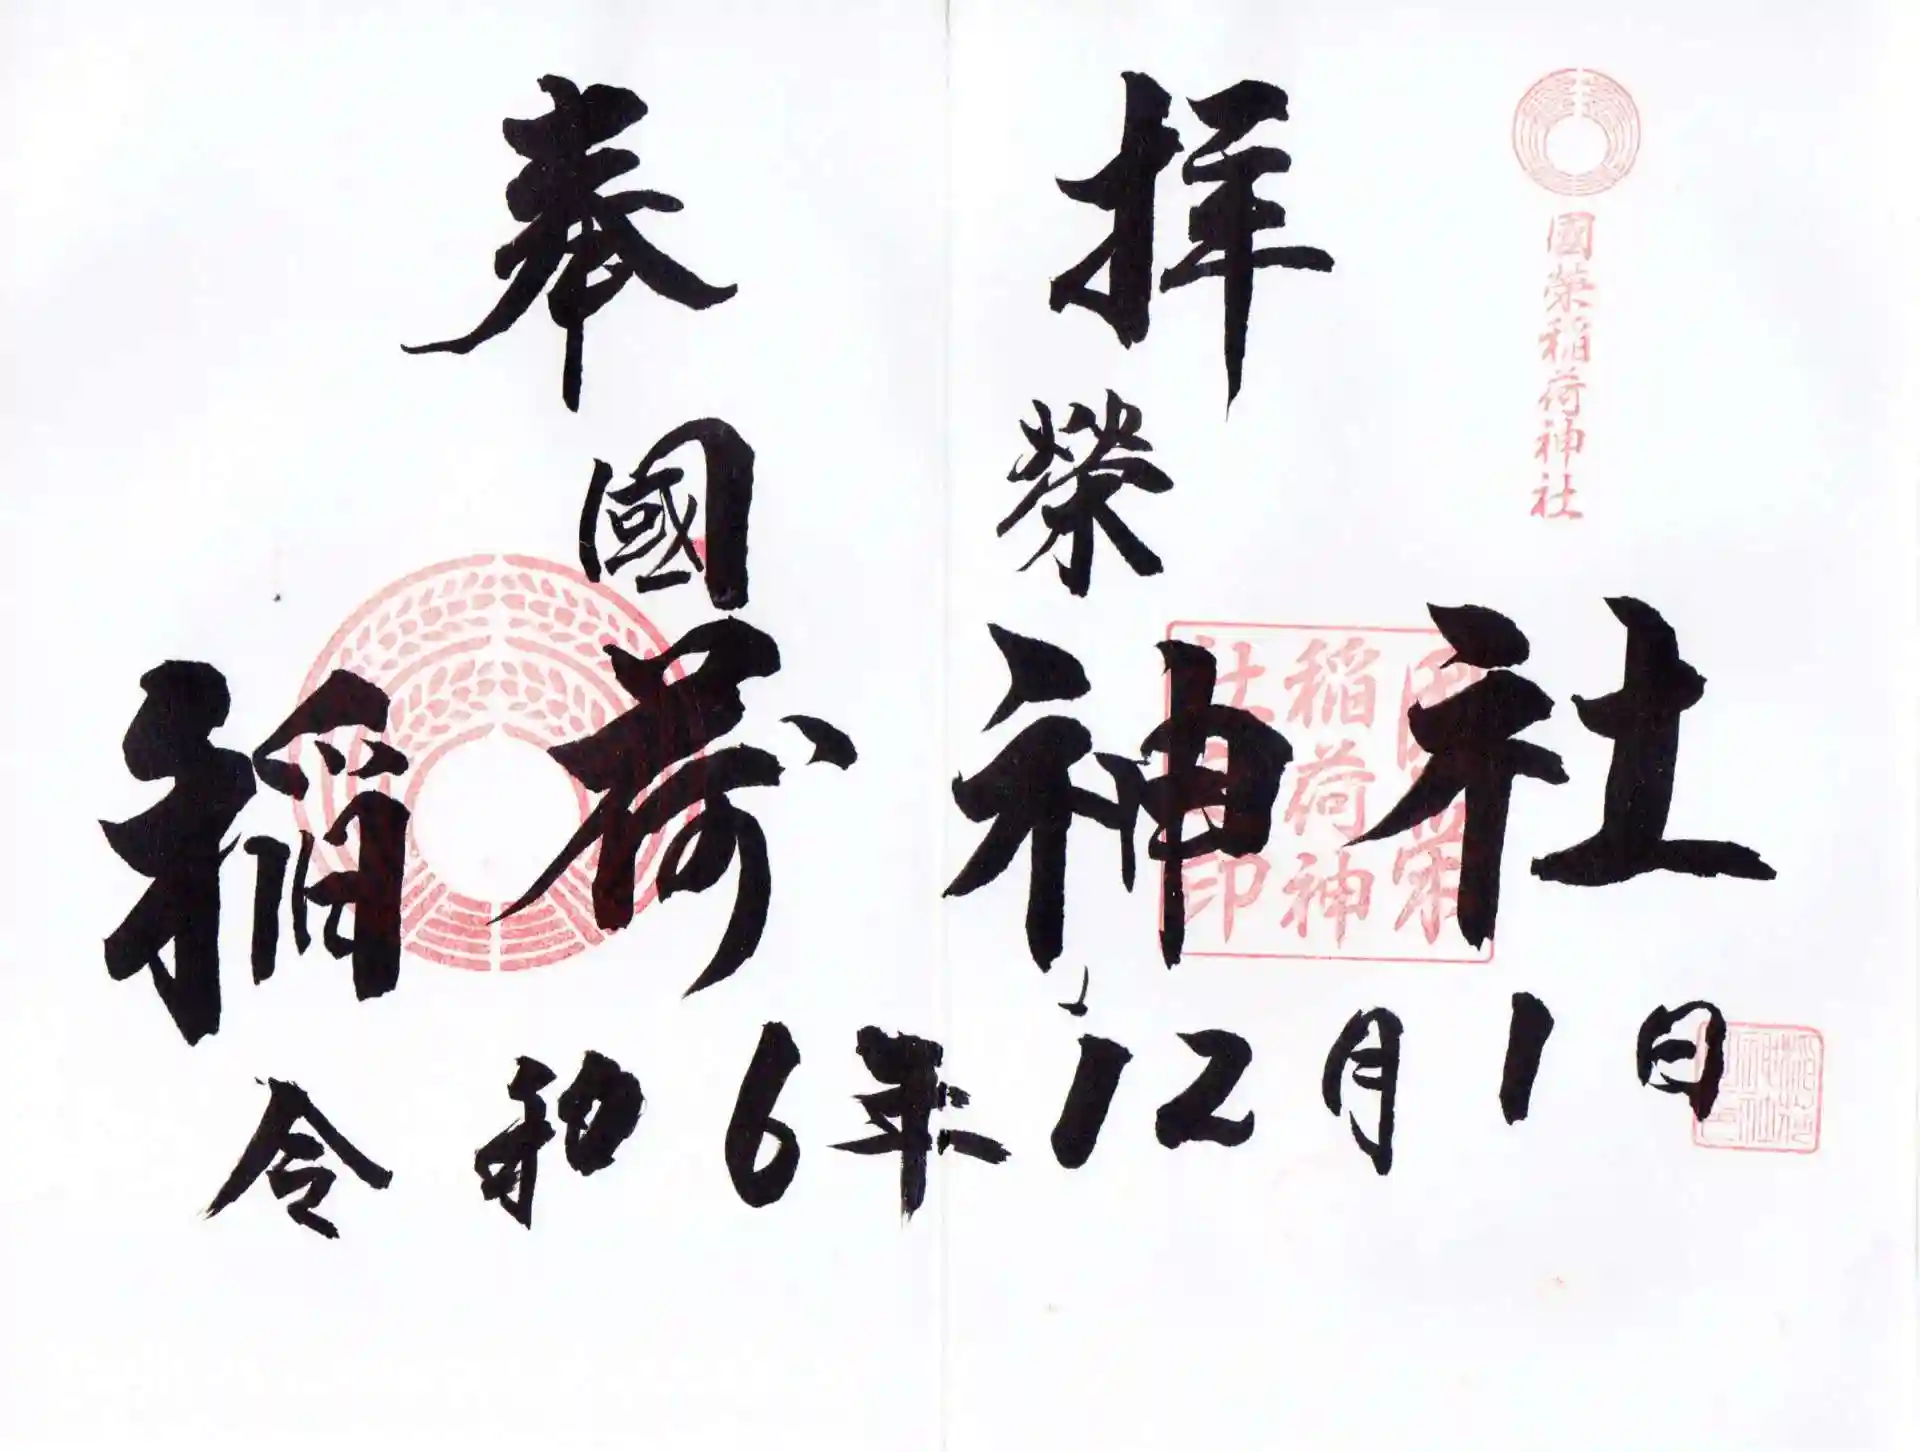 奉拝
國榮
稲荷神社
令和6年12月1日
國榮稲荷神社
國榮
稲荷神
社之印